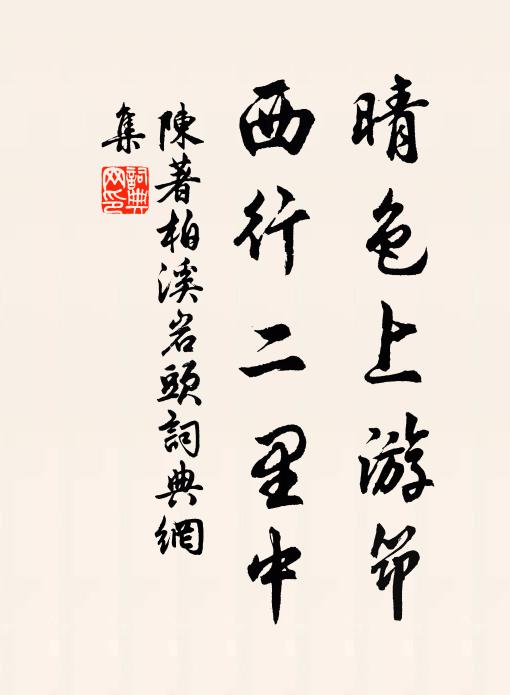 晴色上游筇
西行二里中
陳著柏溪岩頭詞典網
集
詞典
网印